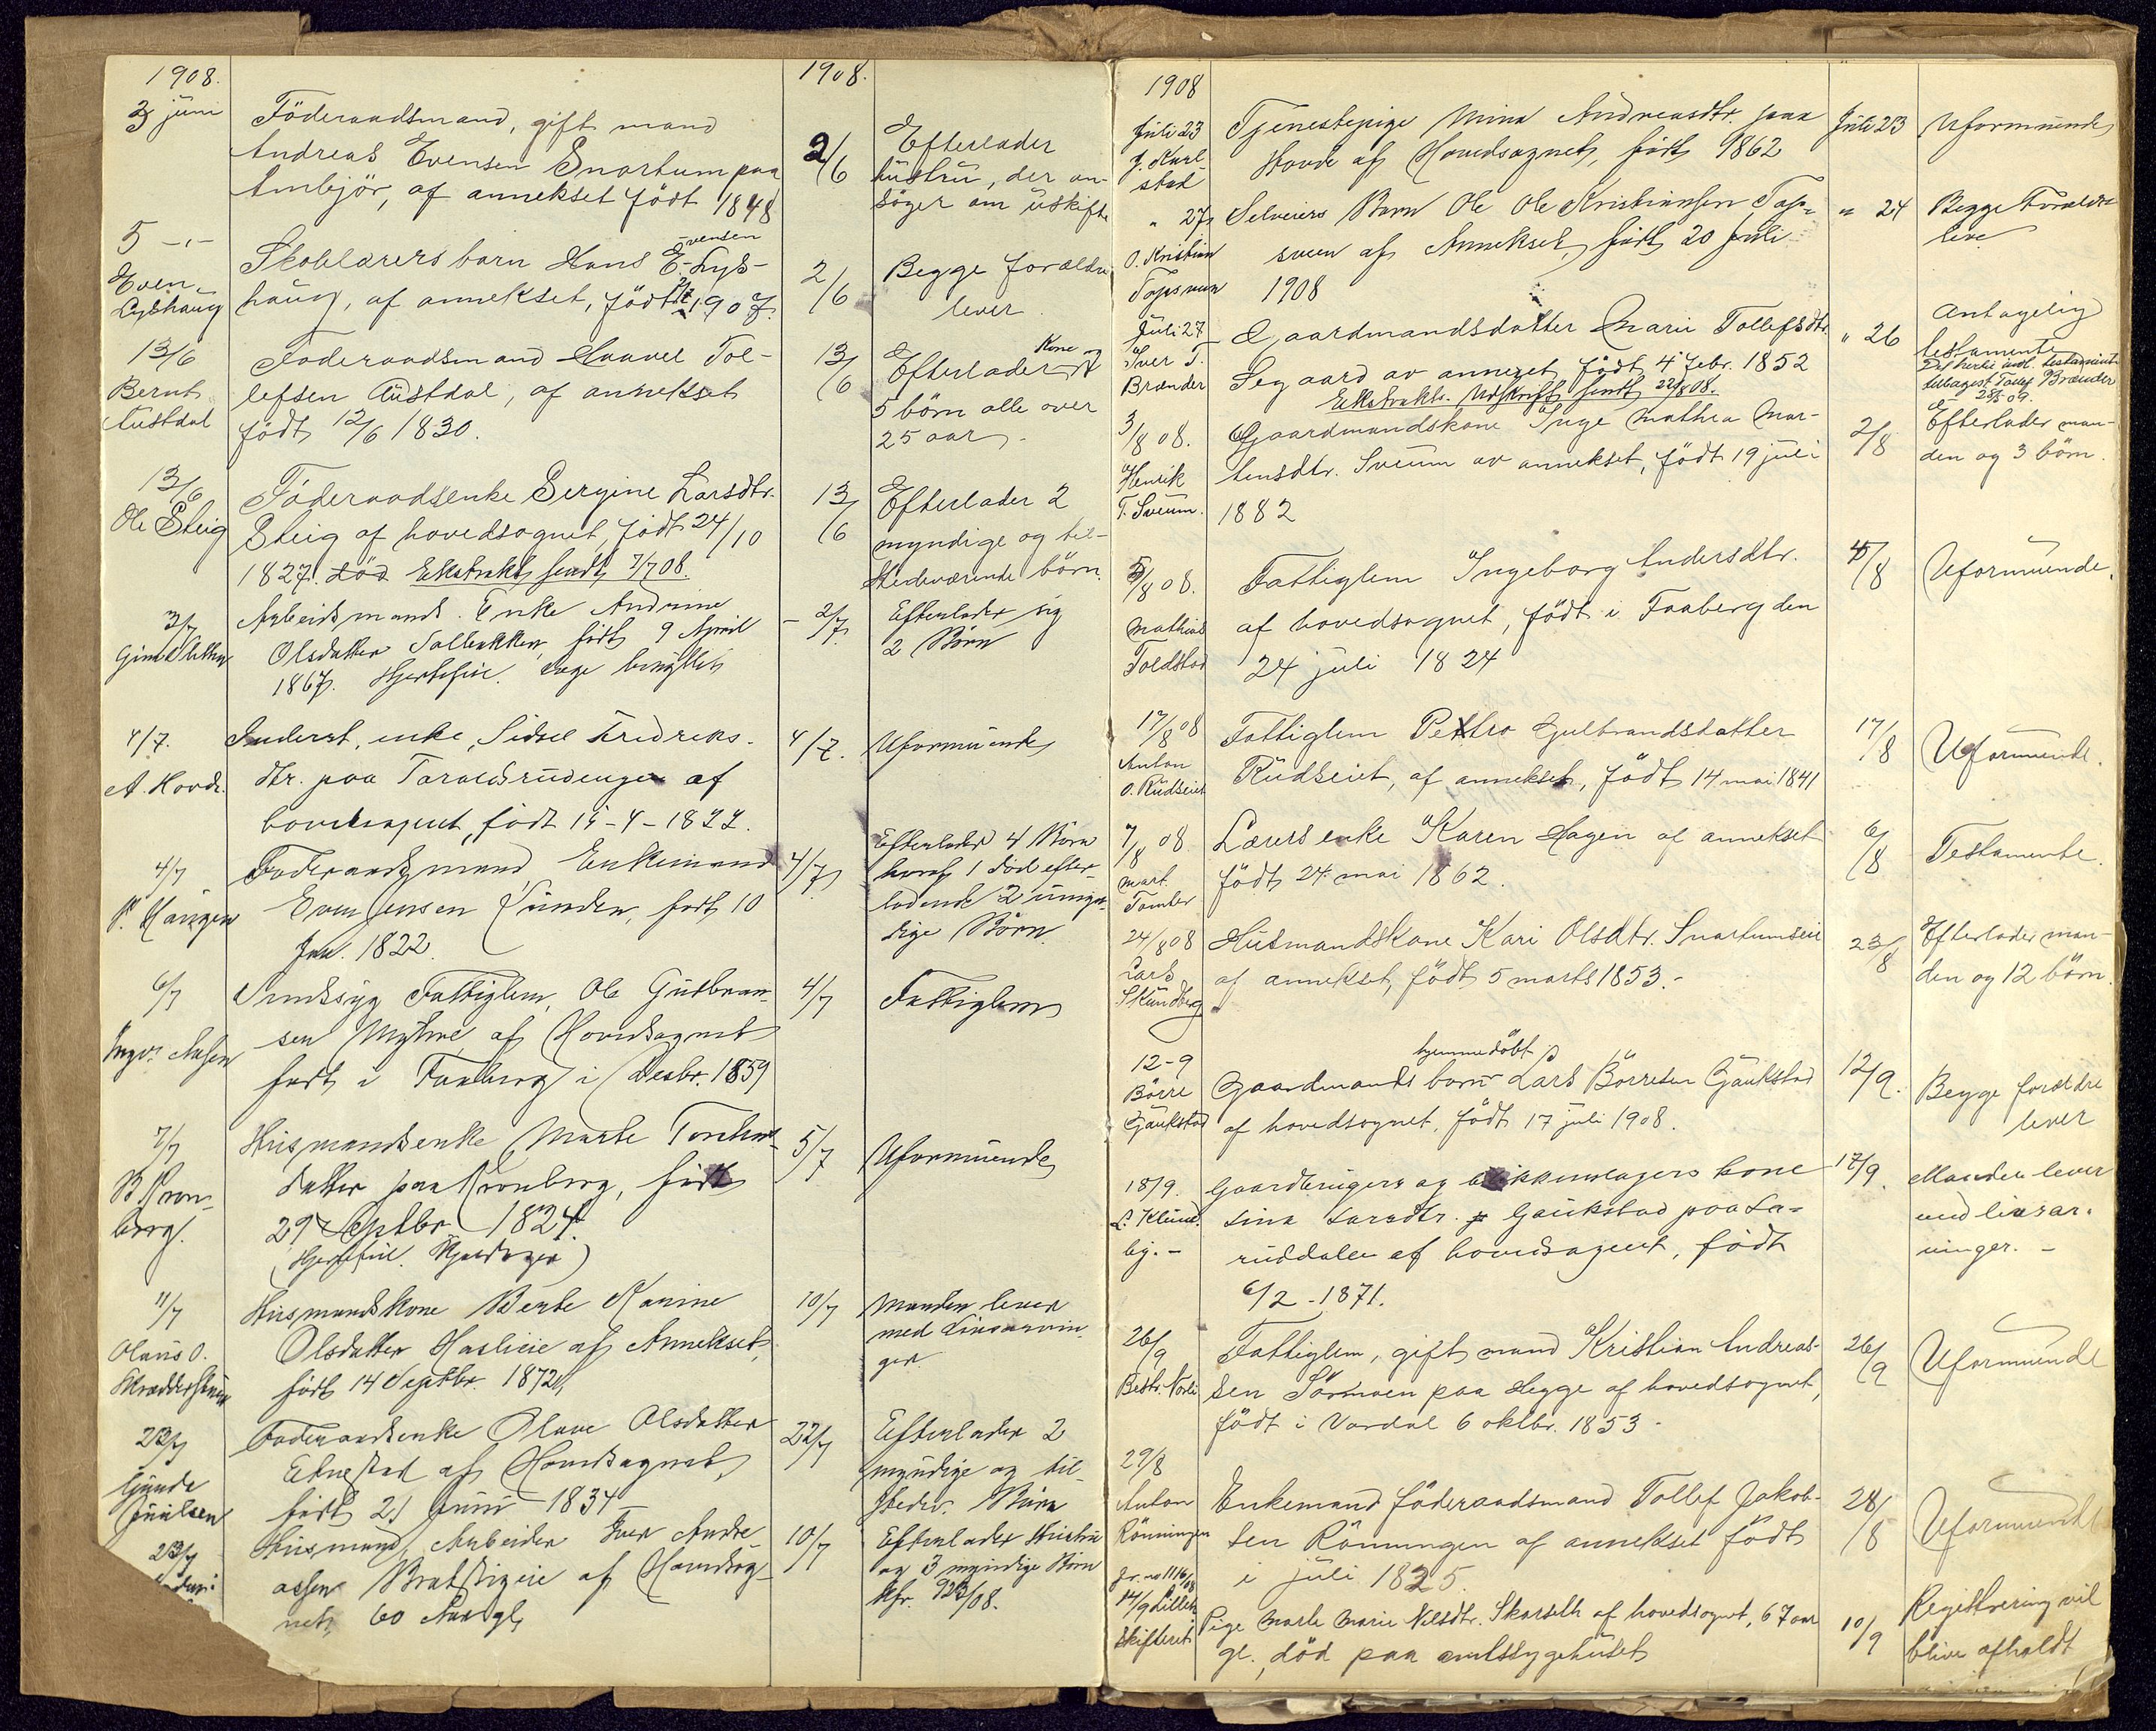 1908.
1908.
3 juni Föderaadsmand, gift mand
Andreas Evensen Snortum paa
Ambjör, af annekset födt 1848
2/6 Efterlader
hüstru, der an-
söger om üskifte
5 -"- Skolelærers barn Hans E-vensen Lys-
haug, af annekset, födt 1907.
Even
Lyshaug
2/6 Begge forældre
lever
13/6
Bernt
Austdal
Föderaadsmand Haavel Tol-
lefsen Austdal, af annekset
födt 12/6 1830.
13/6 Efterlader Kone og
5 börn alle over
25 aar.
13/6
Ole Steig
Föderaadsenke Sergine Larsdtr.
Steig af hovedsognet, födt 24/10
1827. död Ekstrakt sendt 7/7 08.
13/6 Efterlader 2
myndige og til-
stedeværende börn.
3/7
Arbeidsmands Enke Andrine
Olsdatter Solbakken, födt 9 April
1867. Hjertefeil.
2/7 Efterlader sig
2 Börn
4/7.
A. Hovde.
Inderst, enke, Sidsel Fredriks-
dtr. paa Taraldsrudengen af
hovedsognet, födt
4/7. Uformuende
4/7
P. Haugen
Föderaadsmand Enkemand
Even Jensen Sünden, födt 10
Jan. 1822.
4/7 Efterlader 4 Börn
hvoraf 1 död efter-
ladende 2 umyn-
dige Börn.
6/7
Sindssyg Fattiglem, Ole Gutbran-
sen Myhre af Hovedsognet
födt i Faaberg i Desbr. 1859
4/7 Fattiglem
7/7
B. Kron-
borg.
Husmandsenke Marte
datter paa Kronborg, födt
29 Septbr 1824.
5/7 Uformuende
11/7
Olaus O.
Husmandskone Berte Karine
Olsdatter Haslieie af Annekset,
födt 14 Septbr. 1872,
10/7 Manden lever
med Livsarvin-
ger.
22/7
Gunde
Juulsen
Föderaadsenke Olave Olsdatter
af Hovedsognet,
födt 21 Juni 1834
22/7 Efterlader 2
myndige og til-
stedev. Börn
23/7
Husmand, Arbeider Iver Andre-
assen af Hovedsog-
net, 60 Aar gl,
10/7 Efterlader Hustru
og 3 myndige Börn
1908
Juli 23
J. Karl-
stad
Tjenestepige Mina Andreasdtr. paa
Hovde af Hovedsognet, födt 1862
Juli 23 Uformuende
" 27
O. Kristian
Topsveen
Selveiers Barn Ole Ole Kristiansen Top-
sveen af Annekset, födt 20 Juli
1908
" 24 Begge Forældre
leve
Juli 27
Iver T.
Brænder
Gaardmandsdatter Marie Tollefsdtr.
Segaard av annexet, födt 4 Febr. 1852
Ekstrakts. Udskrift sendt 22/8 08.
" 26 Antagelig
testamente
Det hertil indl. testament
tilbagest. Tollef Brænder
3/8 08.
Henrik
T. Sveum.
Gaardmandskone Inge Mathea Mar-
tinsdtr. Sveum av annekset, födt 19 juli
1882
2/8 Efterlader man-
den og 3 börn.
5/8 08.
Mathias
Toldstad
Fattiglem Ingeborg Andersdtr.
af hovedsognet, födt i Faaberg den
24 juli 1824
4/8 Uformuende.
17/8 08
Anton
O. Rudseiet
Fattiglem Petro Gulbrandsdatter
Rudseiet, af annekset, födt 14 mai 1841
17/8 Uformuende.
7/8 08
Mart.
Tomter
Lærers enke Karen Hagen af annekset
födt 24 mai 1862.
6/8 Testamente.
24/8 08
Lars
Skundberg
Husmandskone Kari Olsdtr. Snortumseie
af annekset, födt 5 marts 1853.-
23/8 Efterlader man-
den og 12 börn.
12-9
Börre
Gaukstad
hjemmedöbt
Gaardmands barn Lars Börresen Gaukstad
af hovedsognet, födt 17 juli 1908.
12/9. Begge forældre
lever
18/9.
Gaardbrugers og blikkenslagers kone
Lina Larsdtr. Gaukstad paa La-
ruddalen af hovedsognet, födt
6/2 - 1871.
17/9. Manden lever
med livsar-
vinger. -
26/9
Fattiglem, gift mand Kristian Andreas-
sen Sörmoen paa Hegge af hovedsognet,
födt i Vardal 6 oktbr. 1853 -
26/9 Uformuende
29/8
Anton
Rönningen
Enkemand föderaadsmand Tollef Jakob-
sen Rönningen af annekset födt
i juli 1825.
28/8 Uformuende
Jr. no 1116/08
14/9 Lilleh.
skifteret
Pige Marte Marie Nilsdtr. Skarseth af hovedsognet, 67 aar
gl., död paa amtssygehuset
10/9 Registrering vil
blive afholdt